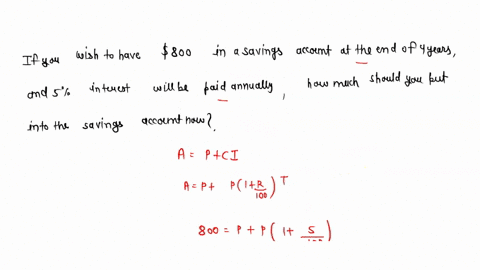 If you wish to have $800 in a savings account at the end of 4 years,
and 5% interest will be paid annually, how much should you put
into the savings account now?
A = P+CI
A = P+ P(1+R/100)^T
800 = P + P(1+ 5/100)